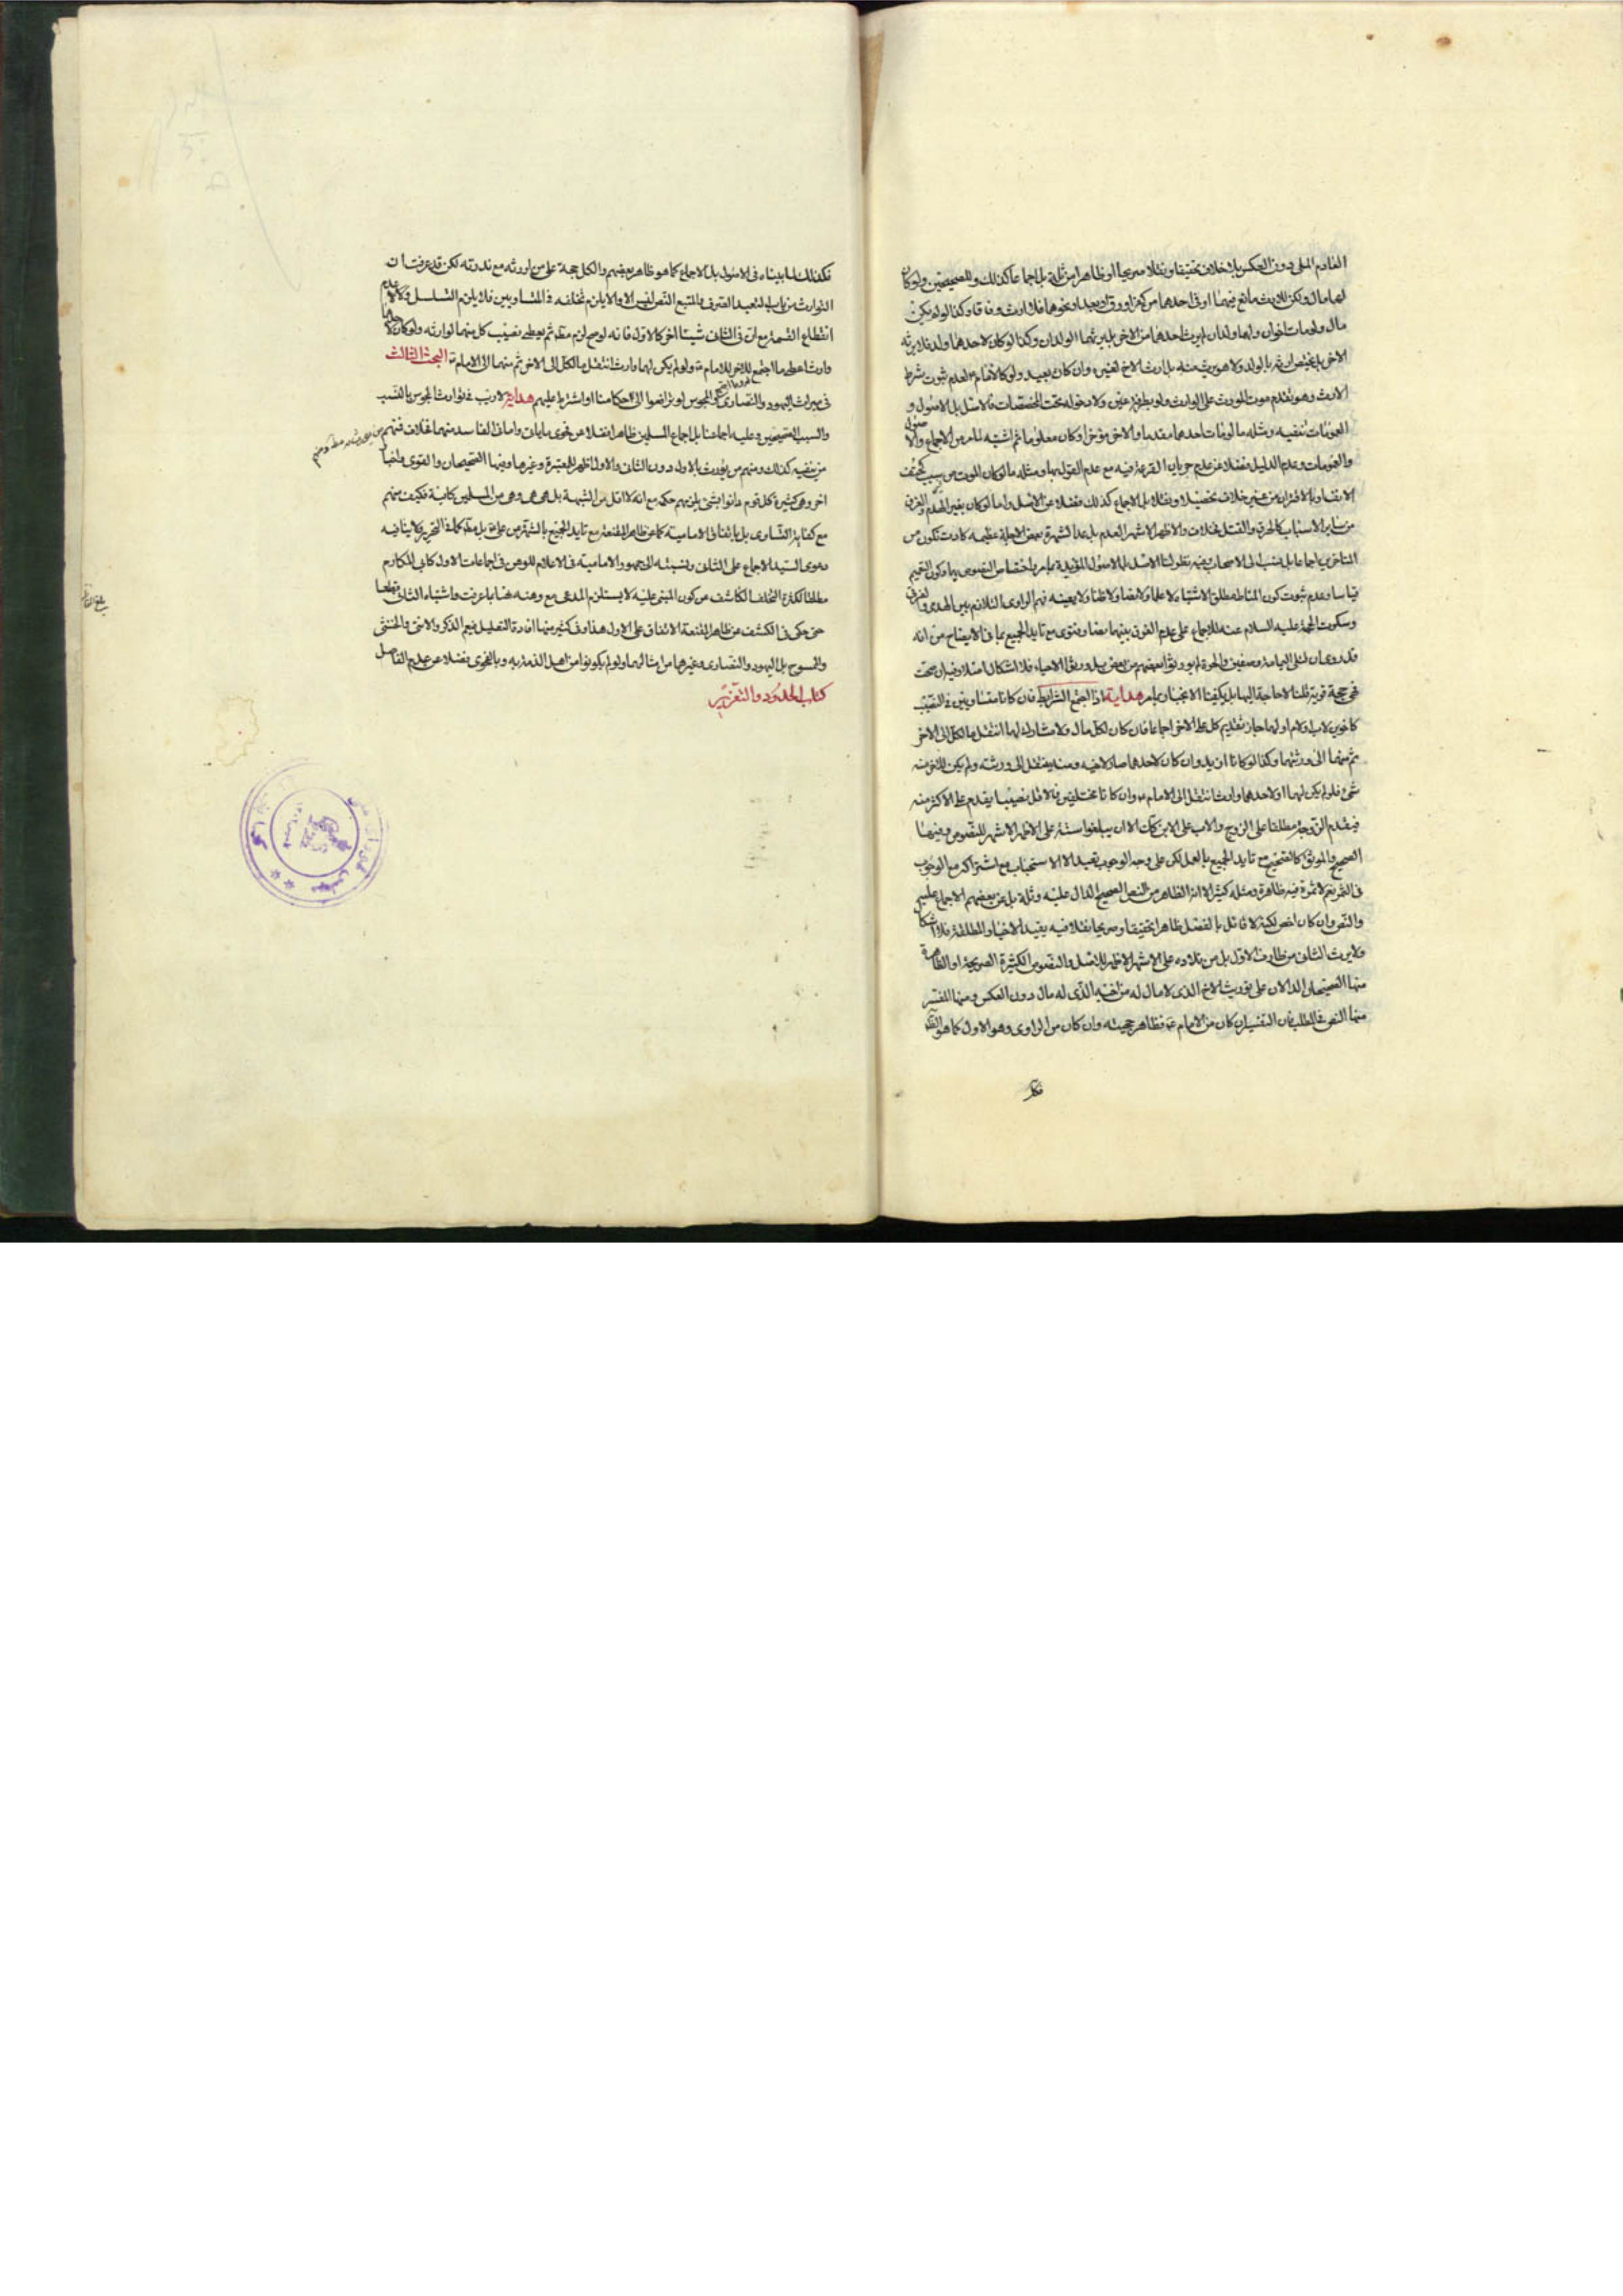 العادم المال دون العكس بلا خلاف تحقيقا ونقلا صريحا او ظاهرا من ثلثة بل اجماعا كذلك وللصحيحين ولو كان
لهما مال ولكن للارث مانع فيهما او فى احدهما من كفر او رق او بعد او نحوهما فلا ارث وفاقا وكذا لو لم يكن
مال ولو مات اخوان ولهما ولدان لم يرث احدهما من الاخر بل يرثهما الولدان وكذا لو كان لاحدهما ولد فلا يرثه
الاخر بل يختص ارثه بالولد ولا هو يرث عنه بل ارث الاخ لغيره وان كان بعيد ولو كالامام لعدم ثبوت شرط
الارث وهو تقدم موت المورث على الوارث ولو بطريق عينى ولا دخوله تحت المخصصات فالاصل بل الاصول و
العمومات تنفيه ومثله ما لو مات احدهما مقدما والاخر مؤخرا وكان معلوما ثم اشتبه لما مر من الاجماع والاصول
والعمومات وعدم الدليل فضلا عن عدم جريان القرعة فيه مع عدم القول بها ومثله ما لو كان الموت من سبب كحتف
الانف او بالاقتران من غير خلاف تحصيلا ونقلا بل الاجماع كذلك فضلا عن الاصل واما لو كان بغير الهدم والغرق
من ساير الاسباب كالحرق والقتل فخلاف والاظهر الاشهر العدم بل عدا الشهرة بعض الاجلة عظيمة كادت تكون من
المتاخرين اجماعا بل نسب الى الاصحاب وفيه نظر لنا الاصل بل الاصول المؤيدة بما مر باختصاص النصوص بهما وكون التعميم
قياسا وعدم ثبوت كون المناط مطلق الاشتباه لا علما ولا نصا ولا ظنا ولا يعينه فهم الراوى التلازم بين الهدم والغرق
وسكوت الحجة عليه السلام عنه للاجماع على عدم الفرق بينهما نصا وفتوى مع تايد الجميع بما فى الايضاح من انه
قد روى ان قتلى اليمامة وصفين والحرة لم يورثوا بعضهم من بعض بل ورثوا الاحياء فلا اشكال اصلا وفيه ان صحت
فهى حجة قوية قلنا لا حاجة اليها بل يكفينا الانجبار بما مر هداية اذا اجتمع الشرايط فان كانا متساويين فى النصيب
كاخوين لاب او لام او لهما جاز تقديم كل على الاخر اجماعا فان كان لكل مال ولا مشارك لهما انتقل مال كل الى الاخر
ثم منهما الى ورثتهما وكذا لو كانا ازيد وان كان لاحدهما صار لاخيه ومنه ينتقل الى ورثته ولم يكن للاخر منه
شىء فلو لم يكن لهما او لاحدهما وارث انتقل الى الامام وان كانا مختلفين فالاقل نصيبا يقدم على الاكثر منه
فيقدم الزوجة مطلقا على الزوج والاب على الابن الا ان يبلغوا ستة على الاظهر الاشهر للنصوص وفيها
الصحيح والموثق كالصحيح مع تايد الجميع بالعمل لكن على وجه الوجوب تعبدا لا الاستحباب مع اشتراكه مع الوجوب
فى الثمرة نعم لا ثمرة فيه ظاهرة ومثله كثير الا انه الظاهر من النص الصحيح الدال عليه وثلة بل عن بعضهم الاجماع عليه
والنص وان كان اخص لكنه لا قائل بالفصل ظاهرا تحقيقا وصريحا نقلا فيه يقيد الاخبار المطلقة فلا اشكال
ولا يرث الثانى من طارف الاول بل من تلاده على الاشهر الاظهر للاصل والنصوص الكثيرة الصريحة او الظاهرة
منها الصحيحان الدالان على توريث الاخ الذى لا مال له من اخيه الذى له مال دون العكس ومنها المفسر
منها النص فى المطلب فان التفسير ان كان من الامام ع فظاهر حجيته وان كان من الراوى وهو الاول كما هو الظاهر
فكذ
فكذلك لما بيناه فى الاصول بل الاجماع كما هو ظاهر بعضهم والكل حجة على من اورثه مع ندرته لكن قد عرفت ان
التوارث من باب التعبد الصرف والمتبع النص لهم الا والا يلزم تخلفه فى المتساويين فلا يلزم التسلسل ولا عدم
انقطاع القسمة مع ان فى الثانى شيئا اخر كالاول فانه لو صح لزم مطلقا ثم يعطى نصيب كل منهما لوارثه ولو كان لاحدهما
وارث اعطى ما اجتمع للاخر للامام ع ولو لم يكن لهما وارث انتقل مال كل الى الاخر ثم منهما الى الامام ع البحث الثالث
فى ميراث اليهود والنصارى والمجوس لو ترافعوا الى حكامنا او اشترط عليهم هداية لا ريب فى توارث المجوس بالنسب
والسبب الصحيحين وعليه اجماعنا بل اجماع المسلمين ظاهرا فضلا عن فحوى ما يأتى واما فى الفاسد منهما فخلاف فمنهم من يورثه مطلقا ومنهم
من ينفيه كذلك ومنهم من يورث بالاول دون الثانى والاول اظهر للمعتبرة وغيرها وفيها الصحيحان والقوى واخبار
اخر وهى كثيرة وكل قوم دانوا بشئ يلزمهم حكمه مع انه لا اقل من الشبهة بل هى هى وهى من المسلمين كافية فكيف منهم
مع كفاية الفتاوى بل باتفاق الامامية كما عن ظاهر المقنعة مع تايد الجميع بالشهرة من عليه بل مطلقا كما فى التحرير ولا ينافيه
دعوى السيد الاجماع على الثانى ونسبته الى جمهور الامامية فى الاعلام للوهن فى اجماعات الاول كابى المكارم
مطلقا لكثرة التخلف الكاشف من كون المبنى عليه لا يستلزم المدعى مع وهنه هنا بما عرفت واشتباه الثانى قطعا
حتى حكى فى الكشف عن ظاهر المقنعة الاتفاق على الاول هذا وفى كثير منها افادة التعليل فيعم الذكر والانثى والخنثى
والممسوح بل اليهود والنصارى وغيرهما من امثالهما ولو لم يكونوا من اهل الذمة به وبالفحوى فضلا عن عدم الفاصل
كتاب الحدود والتعزير